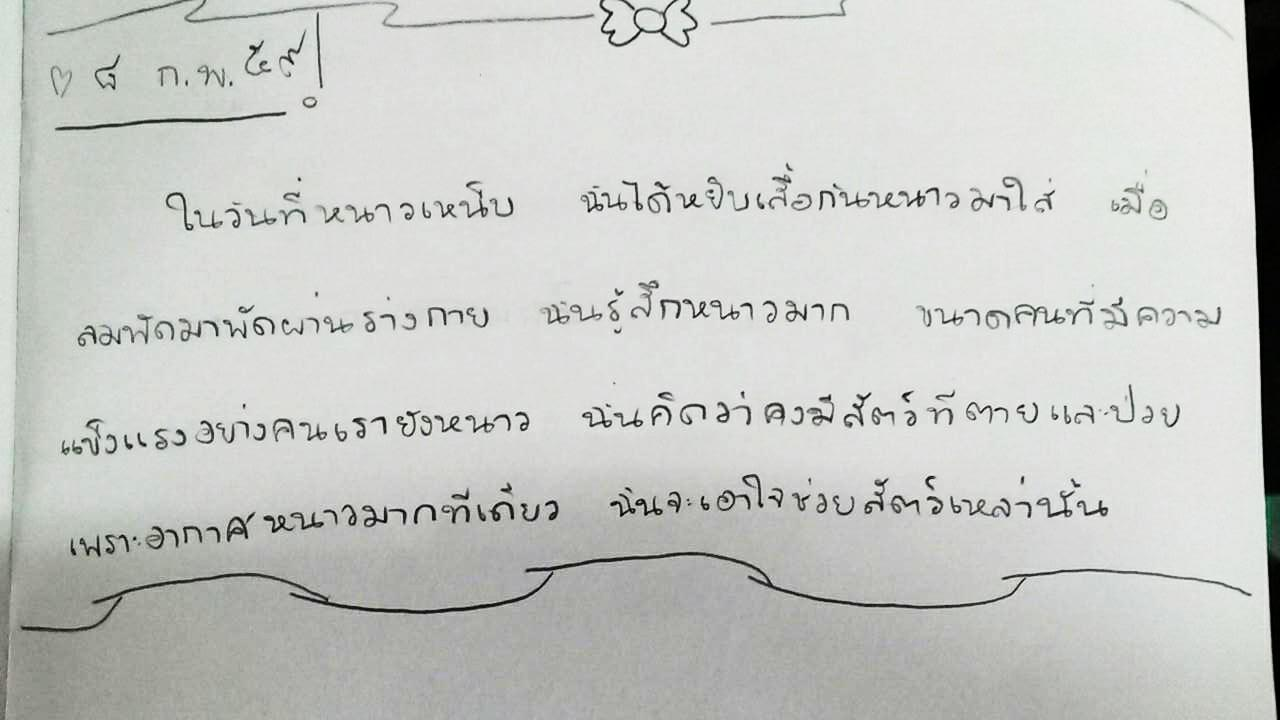 ♡ ๘ ก.พ. ๕๙!
ในวันที่หนาวเหน็บ ฉันได้หยิบเสื้อกันหนาวมาใส่ เมื่อ
ลมพัดมาพัดผ่านร่างกาย ฉันรู้สึกหนาวมาก ขนาดคนที่มีความ
แข็งแรงอย่างคนเรายังหนาว ฉันคิดว่าคงมีสัตว์ที่ตายและป่วย
เพราะอากาศหนาวมากทีเดียว ฉันจะเอาใจช่วยสัตว์เหล่านั้น